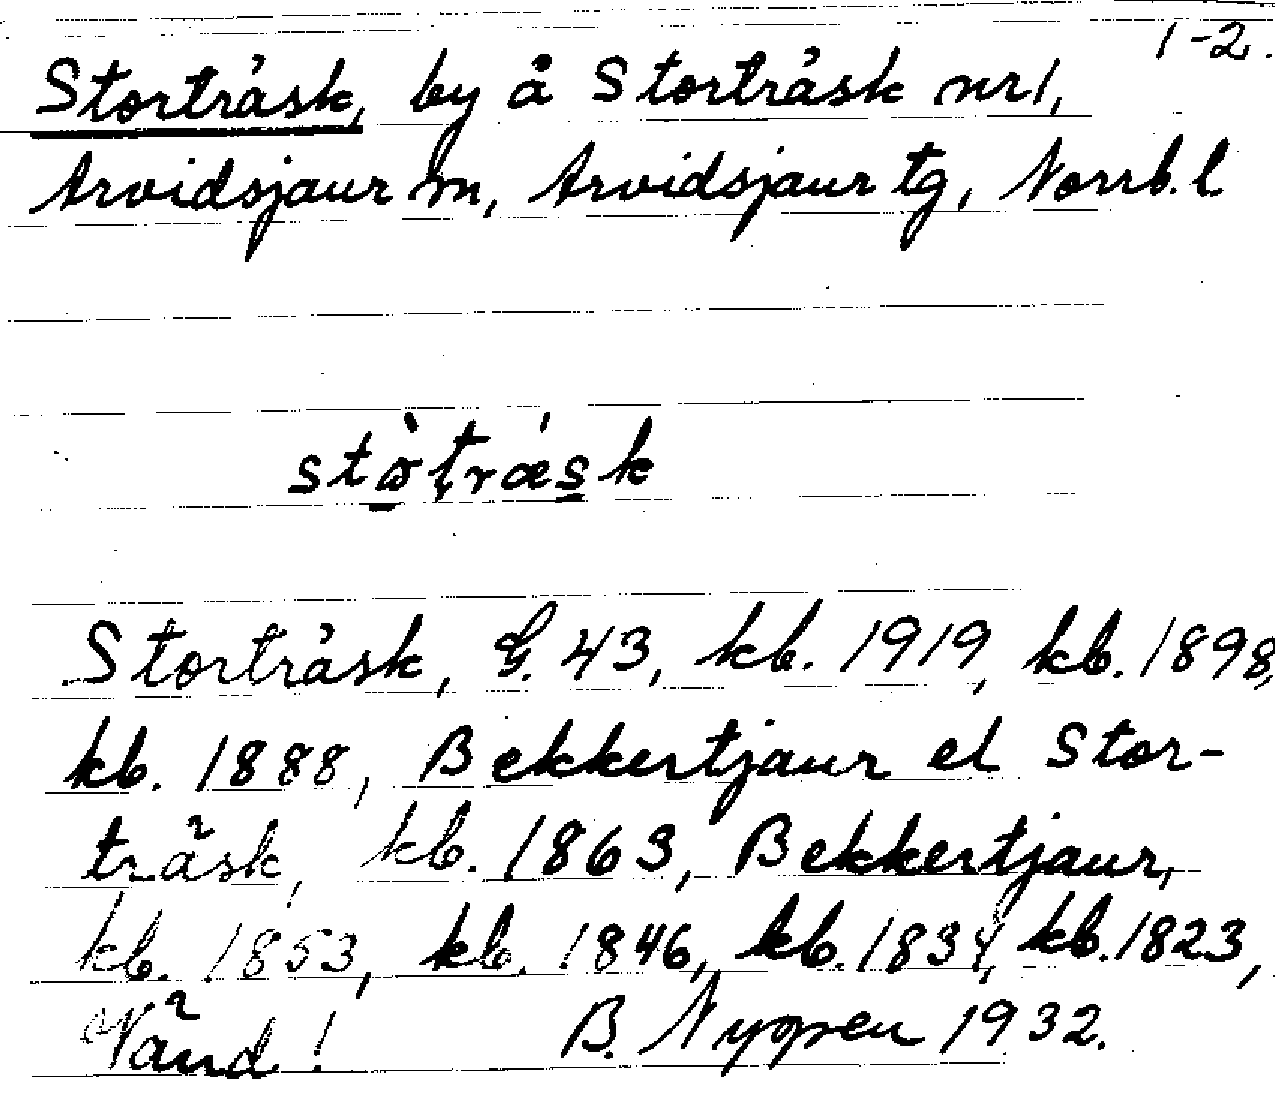 1-2.
Storträsk, by å Storträsk nr 1,
Arvidsjaur sn, Arvidsjaur tg, Norrb. l
Storträsk, G. 43, kb. 1919, kb. 1898,
kb. 1888, Bekkertjaur el Stor-
träsk, kb. 1863, Bekkertjaur,
kb. 1853, kb. 1846, kb. 1834, kb. 1823,
Vänd! B. Nyppen 1932.